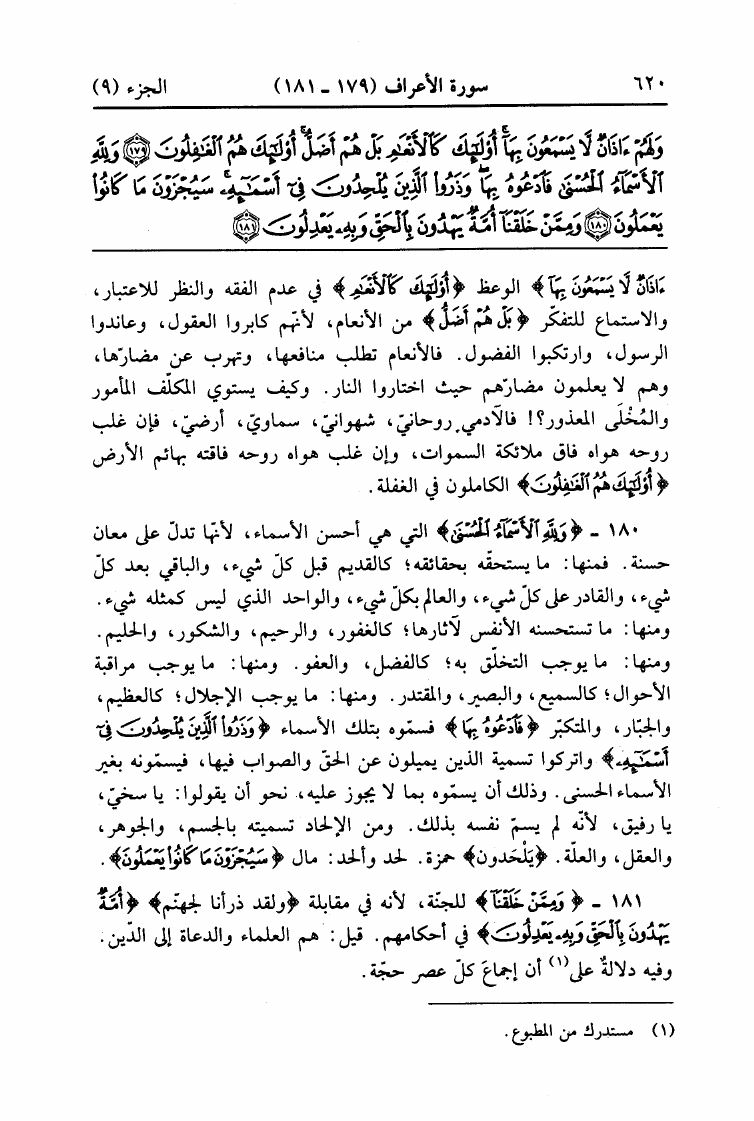 ٦٢٠ سورة الأعراف (١٧٩ ـ ١٨١) الجزء (٩)
وَلَهُمْ ءَاذَانٌ لَّا يَسْمَعُونَ بِهَآ ۚ أُو۟لَٰٓئِكَ كَٱلْأَنْعَٰمِ بَلْ هُمْ أَضَلُّ ۚ أُو۟لَٰٓئِكَ هُمُ ٱلْغَٰفِلُونَ ﴿١٧٩﴾ وَلِلَّهِ
ٱلْأَسْمَآءُ ٱلْحُسْنَىٰ فَٱدْعُوهُ بِهَا ۖ وَذَرُوا۟ ٱلَّذِينَ يُلْحِدُونَ فِىٓ أَسْمَٰٓئِهِۦ ۚ سَيُجْزَوْنَ مَا كَانُوا۟
يَعْمَلُونَ ﴿١٨٠﴾ وَمِمَّنْ خَلَقْنَآ أُمَّةٌ يَهْدُونَ بِٱلْحَقِّ وَبِهِۦ يَعْدِلُونَ ﴿١٨١﴾
ءَاذَانٌ لَّا يَسْمَعُونَ بِهَآ﴾ الوعظ ﴿أُو۟لَٰٓئِكَ كَٱلْأَنْعَٰمِ﴾ في عدم الفقه والنظر للاعتبار،
والاستماع للتفكّر ﴿بَلْ هُمْ أَضَلُّ﴾ من الأنعام، لأنهم كابروا العقول، وعاندوا
الرسول، وارتكبوا الفضول. فالأنعام تطلب منافعها، وتهرب عن مضارّها،
وهم لا يعلمون مضارّهم حيث اختاروا النار. وكيف يستوي المكلّف المأمور
والمُخْلَى المعذور؟! فالآدمي روحانيّ، شهوانيّ، سماويّ، أرضيّ، فإن غلب
روحه هواه فاق ملائكة السموات، وإن غلب هواه روحه فاقته بهائم الأرض
﴿أُو۟لَٰٓئِكَ هُمُ ٱلْغَٰفِلُونَ﴾ الكاملون في الغفلة.
١٨٠ ـ ﴿وَلِلَّهِ ٱلْأَسْمَآءُ ٱلْحُسْنَىٰ﴾ التي هي أحسن الأسماء، لأنها تدلّ على معان
حسنة. فمنها: ما يستحقّه بحقائقه؛ كالقديم قبل كلّ شيء، والباقي بعد كلّ
شيء، والقادر على كلّ شيء، والعالم بكلّ شيء، والواحد الذي ليس كمثله شيء.
ومنها: ما تستحسنه الأنفس لآثارها؛ كالغفور، والرحيم، والشكور، والحليم.
ومنها: ما يوجب التخلّق به؛ كالفضل، والعفو. ومنها: ما يوجب مراقبة
الأحوال؛ كالسميع، والبصير، والمقتدر. ومنها: ما يوجب الإجلال؛ كالعظيم،
والجبّار، والمتكبّر ﴿فَٱدْعُوهُ بِهَا﴾ فسمّوه بتلك الأسماء ﴿وَذَرُوا۟ ٱلَّذِينَ يُلْحِدُونَ فِىٓ
أَسْمَٰٓئِهِۦ﴾ واتركوا تسمية الذين يميلون عن الحقّ والصواب فيها، فيسمّونه بغير
الأسماء الحسنى. وذلك أن يسمّوه بما لا يجوز عليه، نحو أن يقولوا: يا سخيّ،
يا رفيق، لأنّه لم يسمّ نفسه بذلك. ومن الإلحاد تسميته بالجسم، والجوهر،
والعقل، والعلّة. ﴿يَلْحَدون﴾ حمزة. لحد وألحد: مال ﴿سَيُجْزَوْنَ مَا كَانُوا۟ يَعْمَلُونَ﴾.
١٨١ ـ ﴿وَمِمَّنْ خَلَقْنَآ﴾ للجنّة، لأنه في مقابلة ﴿ولقد ذرأنا لجهنّم﴾ ﴿أُمَّةٌ
يَهْدُونَ بِٱلْحَقِّ وَبِهِۦ يَعْدِلُونَ﴾ في أحكامهم. قيل: هم العلماء والدعاة إلى الدّين.
وفيه دلالةٌ على(١) أن إجماعَ كلّ عصر حجّة.
(١) مستدرك من المطبوع.